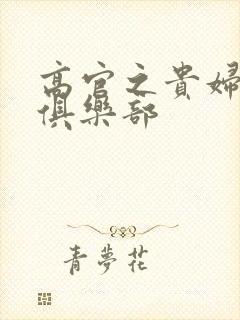 高官之貴婦
俱樂部
青夢花